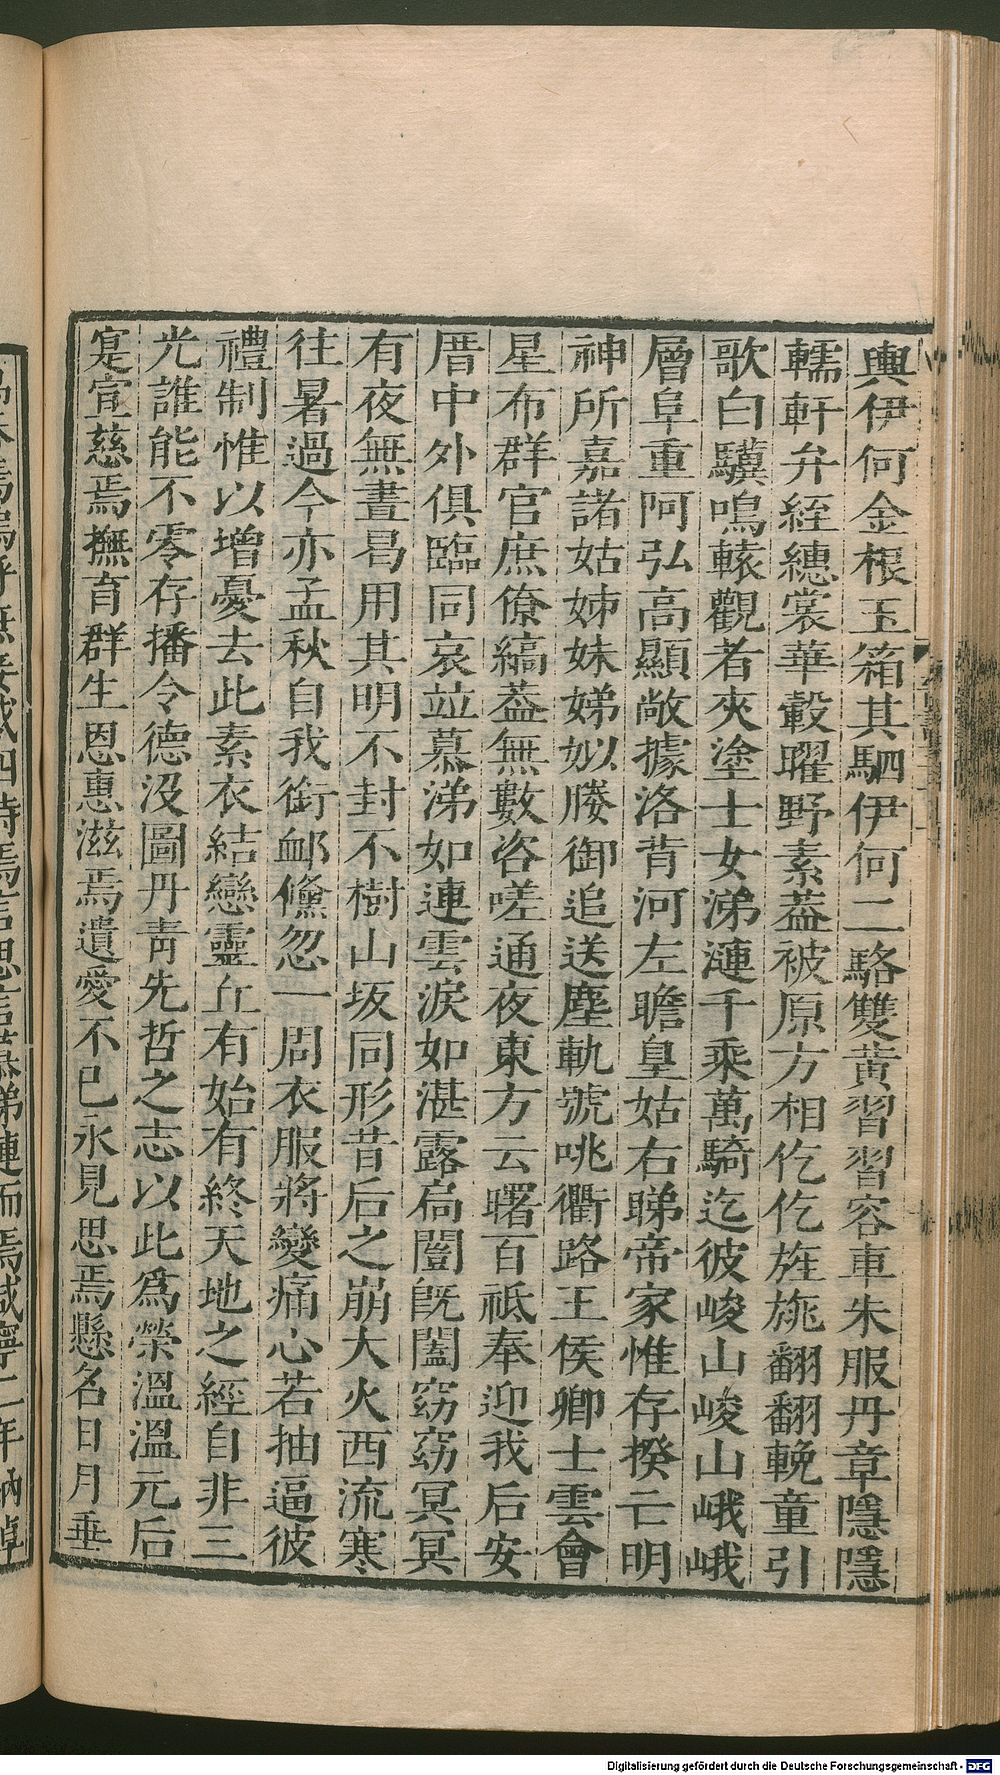 輿伊何金根玉箱其駟伊何二駱雙黃習習容車朱服丹章隱隱
轜軒弁絰繐裳華轂曜野素蓋被原方相仡仡旌旐翻翻輓童引
歌白驥鳴轅觀者夾塗士女涕漣千乘萬騎迄彼峻山峻山峨峨
層阜重阿弘高顯敞據洛背河左瞻皇姑右睇帝家惟存揆亡明
神所嘉諸姑姊妹娣姒媵御追送塵軌號咷衢路王侯卿士雲會
星布群官庶僚縞蓋無數咨嗟通夜東方云曙百祗奉迎我后安
厝中外俱臨同哀竝慕涕如連雲淚如湛露扃闥旣闔窈窈冥冥
有夜無晝曷用其明不封不樹山坂同形昔后之崩大火西流寒
往暑過今亦孟秋自我銜卹儵忽一周衣服將變痛心若抽逼彼
禮制惟以增憂去此素衣結戀靈丘有始有終天地之經自非三
光誰能不零存播令德没圖丹靑先哲之志以此爲榮溫溫元后
寔宣慈焉撫育群生恩惠滋焉遺愛不已永見思焉懸名日月垂
四時焉言思言慕涕漣而焉咸寧二年納悼
Digitalisierung gefördert durch die Deutsche Forschungsgemeinschaft - DFG